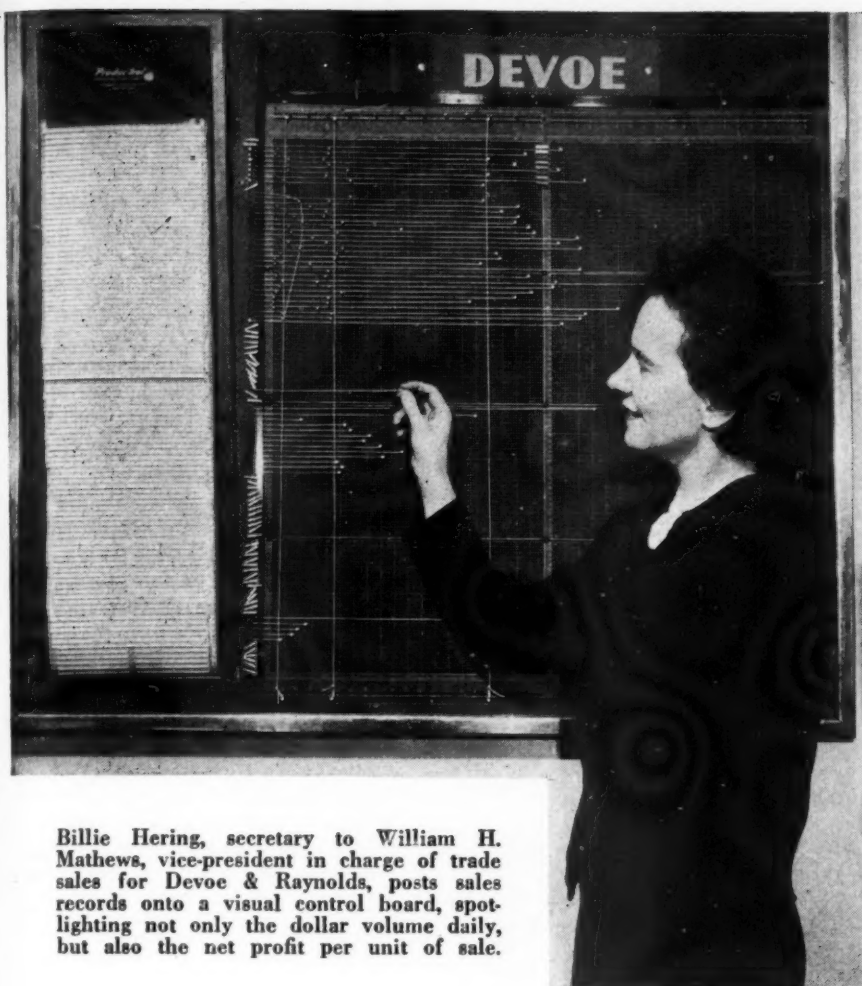 DEVOE
Billie Hering, secretary to William H.
Mathews, vice-president in charge of trade
sales for Devoe & Raynolds, posts sales
records onto a visual control board, spot-
lighting not only the dollar volume daily,
but also the net profit per unit of sale.